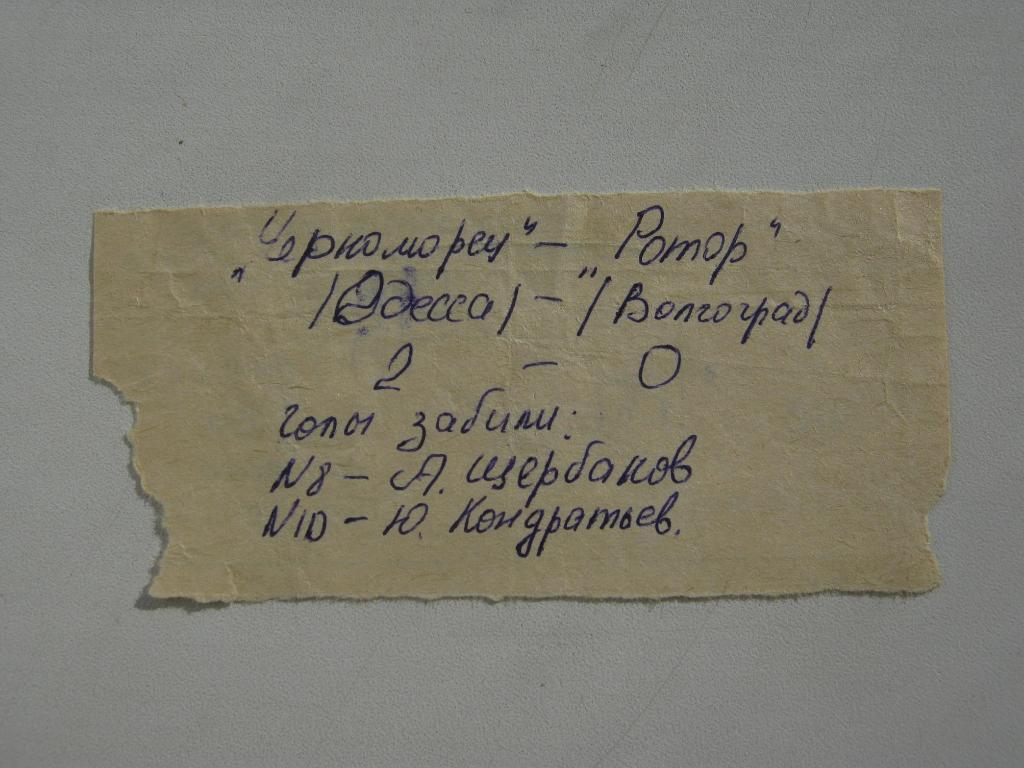 „Черноморец“ – „Ротор“
/Одесса/ – /Волгоград/
2 – 0
голы забили:
N8 – А. Щербаков
N10 – Ю. Кондратьев.